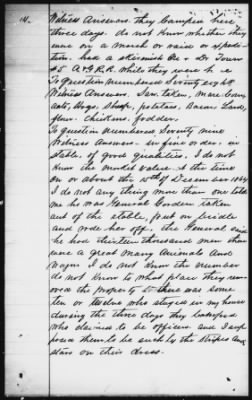 14.
Witness Answers. They Camped here
three days. do not know whether they
were on a march or raid or expedi-
tion. had a skirmish at
A & G.R.R. while they were
To question numbered Seventy eight
Witness Answers. Sam taken, Mare Corn
oats, Hogs, Sheep, potatoes, Bacon Lard,
flour. Chickens, fodder.
To question numbered Seventy nine
Witness Answers - in fine order, in
stable, of good qualities, I do not
know the market place at the time
on or about the 15th day December 1864
I do not any thing more than one told
me he was General Gordon taken
out of the stable, put on bridle
and rode her off. the General said
he had thirteen thousand men there
were a great many Animals and
Wagons I do not know the number
do not know to what place they rem-
oved the property to there was some
ten or twelve who stayed in my house
during the three days they camped
who claimed to be officers and I sup
posed them to be such by the Stripes and
stars on their dress.